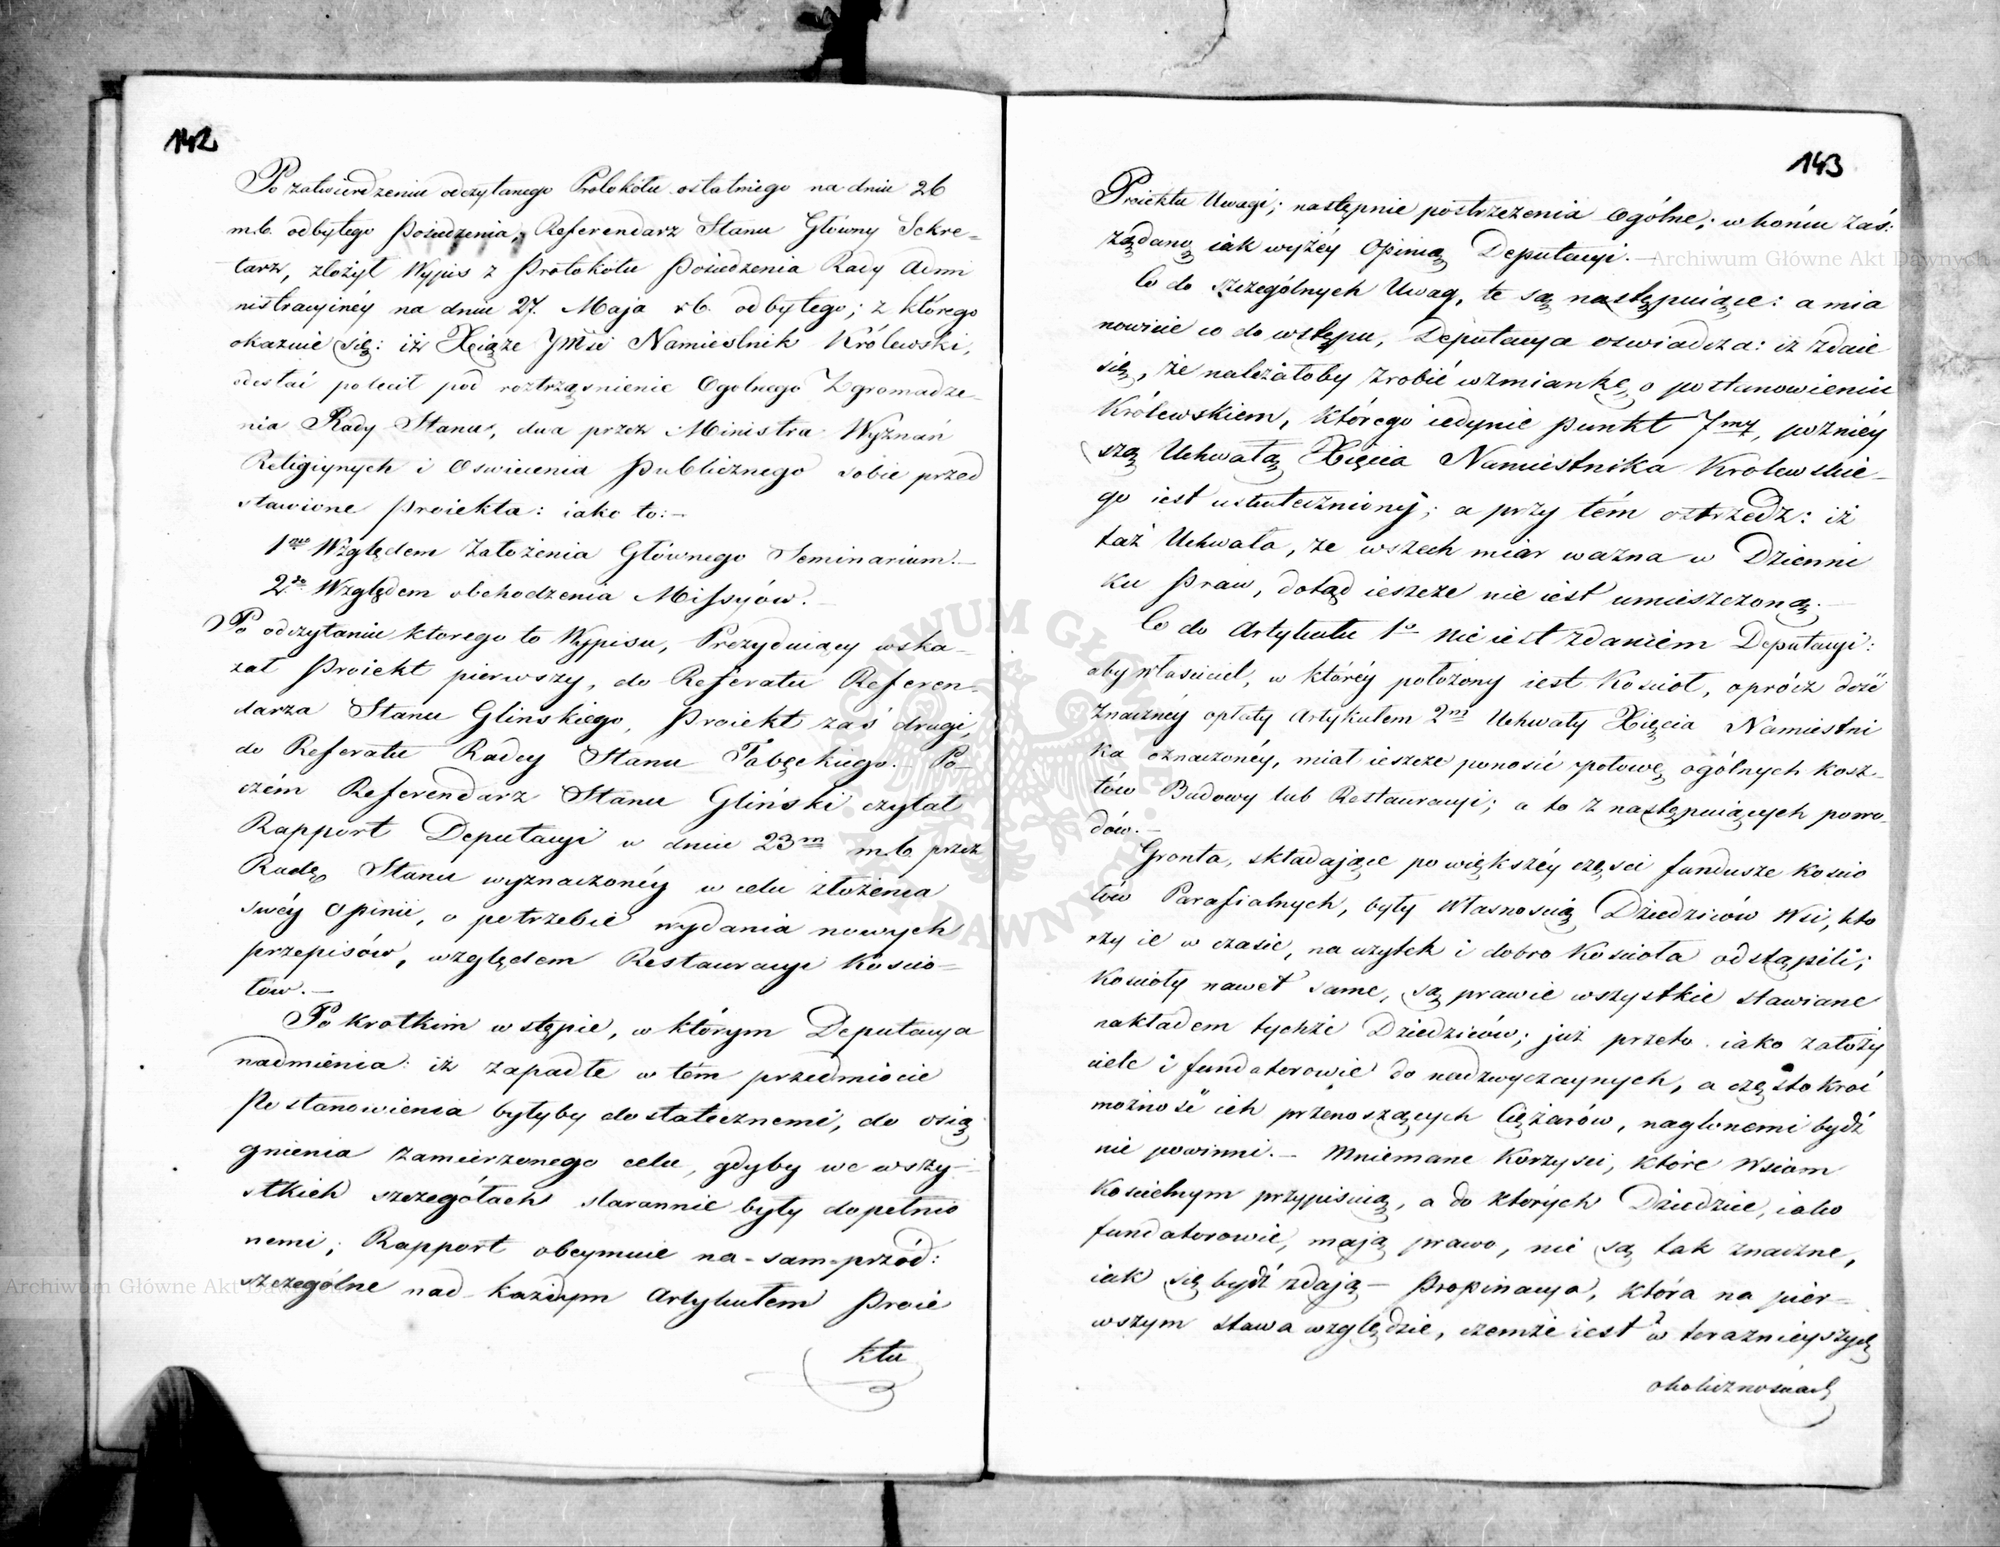 142
Po zatwierdzeniu odczytanego Protokółu ostatniego na dniu 26
m.b. odbytego Posiedzenia, Referendarz Stanu Główny Sekre-
tarz, złożył Wypis z Protokółu Posiedzenia Rady Admi
nistracyinéy na dniu 27. Maja r.b. odbytego; z którego
okazuie się: iż Xiąże JMć Namiestnik Królewski,
odesłać polecił pod roztrząśnienie Ogolnego Zgromadze-
nia Rady Stanu, dwa przez Ministra Wyznań
Religiynych i Oswiecenia Publicznego sobie przed
stawione Proiekta: iako to:-
1mo Względem Założenia Głównego Seminarium.-
2do Względem obchodzenia Missyów.-
Po odczytaniu ktorego to Wypisu, Prezyduiący wska-
zał Proiekt pierwszy, do Referatu Referen-
darza Stanu Glinskiego, Proiekt zaś drugi,
do Referatu Radcy Stanu Tabęckiego.- Po-
czém Referendarz Stanu Gliński czytał
Rapport Deputacyi w dniu 23m m.b. przez
Radę Stanu wyznaczonéy w celu złożenia
swéy Opinii, o potrzebie wydania nowych
przepisów, względem Restauracyi Kościo-
łów.-
Po krotkim wstępie, w którym Deputacya
nadmienia: iż zapadłe w tém przedmiocie
Postanowienia byłyby dostatecznemi, do osią
gnienia zamierzonego celu, gdyby we wszy-
stkich szczegółach starannie były dopełnio
nemi; Rapport obeymuie na-sam-przód:
szczególne nad każdym Artykułem Proie
ktu
143
Proiektu Uwagi; następnie postrzeżenia Ogólne; w końcu zaś:
żądaną iak wyżéy Opinią Deputacyi.-
Co do szczególnych Uwag, te są następuiące: a mia
nowicie co do wstępu, Deputacya oswiadcza: iż zdaie
się, że należałoby zrobić wzmiankę o postanowieniu
Królewskiem, którego iedynie punkt 7my, poznièy
szą Uchwałą Xięcia Namiestnika Krolewskie-
go iest uskuteczniony; a przy tém ostrzedz: iż
taż Uchwała, ze wszech miar ważna w Dzienni
ku Praw, dotąd ieszcze nie iest umieszczoną.-
Co do Artykułu 1o nie iest zdaniem Deputacyi:
aby właściciel, w któréy położony iest Kościoł, oprócz dość
znacznéy opłaty Artykułem 2m Uchwały Xięcia Namiestni
ka oznaczonéy, miał ieszcze ponosić połowę ogólnych kosz-
tów Budowy lub Restauracyi; a to z następuiących powo-
dów.-
Gronta, składaiące po większéy części fundusze Kościo
łów Parafialnych, były Własnością Dziedziców Wsi, któ
rzy ie w czasie, na użytek i dobro Kościoła odstąpili;
Kościoły nawet same, są prawie wszystkie stawiane
nakładem tychże Dziedziców; już przeto iako założy
ciele i fundatorowie do nadzwyczaynych, a częstokroć
możność ich przenoszących Ciężarów, naglonemi bydź
nie powinni.- Mniemane Korzysci, które Wsiom
Kościelnym przypisuią, a do których Dziedzice, iako
fundatorowie, maią prawo, nie są tak znaczne,
iak się bydź zdaią- Propinacya, która na pier-
wszym stawa względzie, czemże iest w teraznieyszych
okolicznościach
Archiwum Główne Akt Dawnych
Archiwum Główne Akt Dawnych
ARCHIWUM GŁÓWNE AKT DAWNYCH